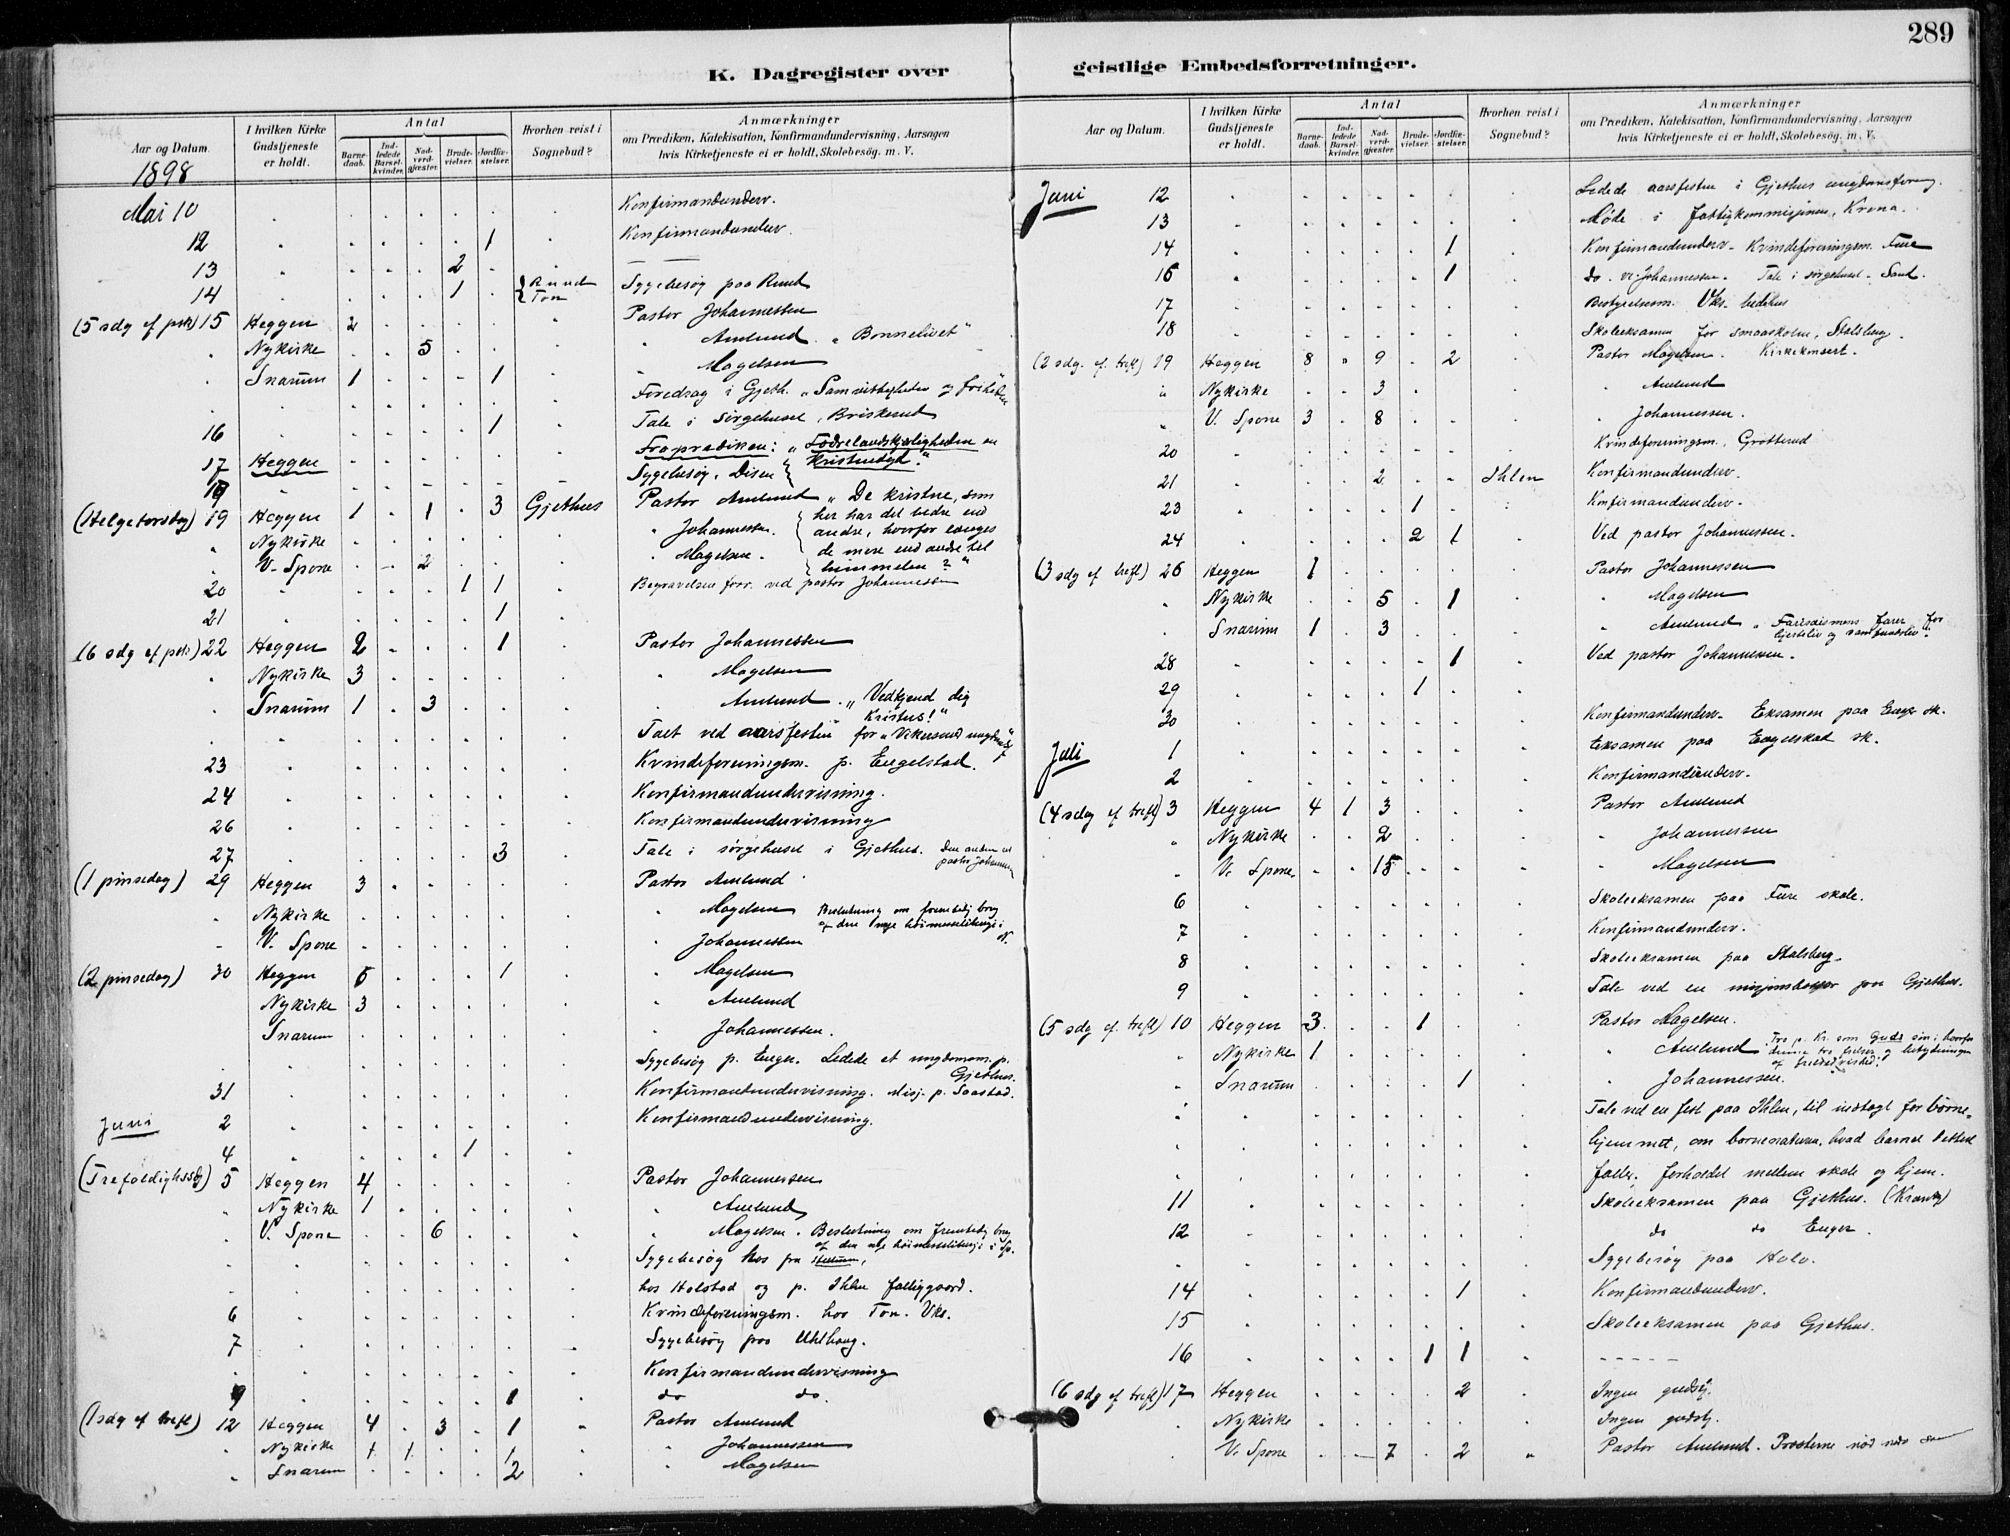 289
K. Dagregister over geistlige Embedsforretninger.
Aar og Datum.
I hvilken Kirke Gudstjeneste er holdt.
Antal
Barnedaab.
Indledede Barselkvinder.
Nadverdgjæster.
Brudevielser.
Jordfæstelser.
Hvorhen reist i Sognebud?
Anmærkninger
om Prædiken, Katekisation, Konfirmandundervisning, Aarsagen
hvis Kirketjeneste ei er holdt, Skolebesög. m. V.
1898
Mai 10 Konfirmandunderv.
12 1 Konfirmandunderv.
13 2
14 1 Ruud Ton Sygebesøg paa Ruud
(5 sdg ef psk) 15 Heggen 2 Pastor Johannessen
Nykirke 5 " Amlund. "Bønnelivet"
Snarum 1 1 " Magelsen
Foredrag i Gjeth. "Samvittigheden og friheden"
16 1 Tale i sørgehuset, Briskerud
17 Heggen Fraprædiken: "Fædrelandskjærligheden en kristendyd."
18 Sygebesøg, Disen
(Helgetorsdag) 19 Heggen 1 1 3 Gjethus Pastor Amlund "De kristne, som
Nykirke " Johannessen her har det bedre end
V. Spone 2 " Magelsen. andre, hvorfor længes
de mere end andre til
himmelen?"
20 1 1 Begravelsen forr. ved pastor Johannessen
21 1
(6 sdg ef psk) 22 Heggen 2 1 Pastor Johannessen
Nykirke 3 " Magelsen
Snarum 1 3 " Amlund. "Vedkjend dig Kristus!"
Talt ved aarsfesten for "Vikersund
23 Kvindeforeningsm. p. Engelstad.
24 Konfirmandundervisning.
26 Konfirmandundervisning
27 3 Tale i sørgehuset i Gjethus. Den anden ved pastor Johannessen
(1 pinsedag) 29 Heggen 3 Pastor Amlund
Nykirke " Magelsen Beslutning om fremtidig brug
af den nye høimesseliturgi i N.
V. Spone " Johannessen
(2 pinsedag) 30 Heggen 5 1 " Magelsen
Nykirke 3 " Amlund
Snarum " Johannessen.
Sygebesøg p. Enger. Ledede et ungdomsm. p. Gjethus.
31 Konfirmandundervisning. Misj. p. Saastad.
Juni 2 Konfirmandundervisning.
4 1
(Trefoldighssdg) 5 Heggen 4 Pastor Johannessen
Nykirke 1 " Amlund
V. Spone 6 " Magelsen. Beslutning om fremtidig brug
af den nye høimesseliturgi i Sp.
Sygebesøg hos fru
hos Holstad og p. Ihlen fattiggaard.
6 Kvindeforeningsm. hos Ton. Vks.
7 Sygebesøg paa Uhlhaug.
Konfirmandundervisning
9 1 do do.
(1 sdg ef trefl) 12 Heggen 4 3 1 Pastor Amlund
Nykirke 1 1 1 " Johannessen
Snarum 2 " Magelsen
Aar og Datum.
I hvilken Kirke Gudstjeneste er holdt.
Antal
Barnedaab.
Indledede Barselkvinder.
Nadverdgjæster.
Brudevielser.
Jordfæstelser.
Hvorhen reist i Sognebud?
Anmærkninger
om Prædiken, Katekisation, Konfirmandundervisning. Aarsagen
hvis Kirketjeneste ei er holdt, Skolebesög. m. V.
Juni 12 Ledede aarsfesten i Gjethus ungdomsforeng.
13 Møde i fattigkommisjonen, Krona.
14 1 Konfirmandunderv. Kvindeforeningsm. Fure
16 1 do. v. Johannessen. Tale i sørgehuset. Sand.
17 Bestyrelsesm. Vks. bedehus
18 Skoleeksamen for smaaskolen, Stalsberg.
(2 sdg. ef. trefl) 19 Heggen 8 9 2 Pastor Magelsen. Kirkekonsert.
Nykirke 3 " Amlund
V. Spone 3 8 " Johannessen.
20 Kvindeforeningsm., Grøtterud
21 2 Ihlen Konfirmandunderv.
23 1 Konfirmandunderv.
24 2 1 Ved pastor Johannessen.
(3 sdg ef trefl) 26 Heggen 1 Pastor Johannessen
Nykirke 5 1 " Magelsen
Snarum 1 3 " Amlund "Farisæismens farer for
hjerteliv og samfundsliv".
28 1 Ved pastor Johannessen.
29 1
30 Konfirmandunderv. Eksamen paa Enger sk.
Juli 1 Eksamen paa Engelstad sk.
2 Konfirmandunderv.
(4 sdg ef trefl) 3 Heggen 4 1 3 Pastor Amlund
Nykirke 2 " Johannessen
V. Spone. 15 " Magelsen
6 Skoleeksamen paa Fure skole.
7 Konfirmandunderv.
8 Skoleeksamen paa Stalsberg.
9 Tale ved en misjonsbasar paa Gjethus.
(5 sdg ef. trefl) 10 Heggen 3 1 Pastor Magelsen.
Nykirke 1 " Amlund "Tro p. Kr. som Guds søn: hvorfor
denne tro frelser og betydningen
af
Snarum 1 " Johannessen.
Tale ved en fest paa Ihlen, til indtægt for børne-
hjemmet, om børnenaturen, hvad barnet
falder. forholdet mellem skole og hjem.
11 Skoleeksamen paa Gjethus. (Krantz)
12 do do Enger.
Sygebesøg paa Hole.
14 1 Konfirmandunderv.
15 Skoleeksamen paa Gjethus.
16 1 1 - - - - -
(6 sdg ef trefl) 17 Heggen 2 Ingen gudstj.
Nykirke Ingen gudstj.
V. Spone 7 2 Pastor Amlund. Præsterne